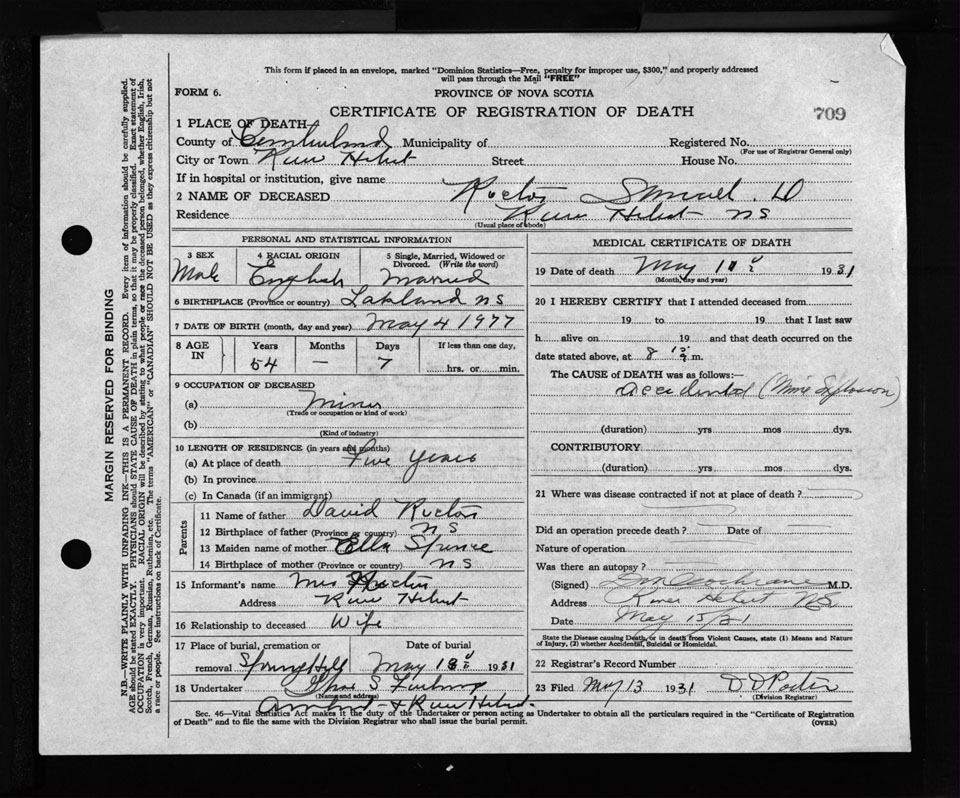 This form if placed in an envelope, marked "Dominion Statistics—Free, penalty for improper use, $300," and properly addressed
will pass through the Mail "FREE"
FORM 6.
PROVINCE OF NOVA SCOTIA
CERTIFICATE OF REGISTRATION OF DEATH
709
1 PLACE OF DEATH
County of Cumberland Municipality of Registered No.
(For use of Registrar General only)
City or Town River Hebert Street House No.
If in hospital or institution, give name
2 NAME OF DECEASED Rector Samuel. D
Residence River Hebert NS
(Usual place of abode)
PERSONAL AND STATISTICAL INFORMATION
3 SEX 4 RACIAL ORIGIN 5 Single, Married, Widowed or
Divorced. (Write the word)
Male English Married
6 BIRTHPLACE (Province or country) Lakland NS
7 DATE OF BIRTH (month, day and year) May 4 1977
8 AGE IN Years Months Days If less than one day,
54 — 7 hrs. or min.
9 OCCUPATION OF DECEASED
(a) Miner
(Trade or occupation or kind of work)
(b)
(Kind of industry)
10 LENGTH OF RESIDENCE (in years and months)
(a) At place of death Five years
(b) In province
(c) In Canada (if an immigrant)
Parents
11 Name of father David Rector
12 Birthplace of father (Province or country) NS
13 Maiden name of mother Ella Spence
14 Birthplace of mother (Province or country) NS
15 Informant's name Mrs Rector
Address River Hebert
16 Relationship to deceased Wife
17 Place of burial, cremation or Date of burial
removal Spring Hill May 1931
18 Undertaker
(Name and address)
Amherst & River Hebert
MEDICAL CERTIFICATE OF DEATH
19 Date of death May 1931
(Month, day and year)
20 I HEREBY CERTIFY that I attended deceased from
19 to 19 that I last saw
h alive on 19 and that death occurred on the
date stated above, at 8 m.
The CAUSE of DEATH was as follows:—
Accidental (Mine Explosion)
(duration) yrs mos dys.
CONTRIBUTORY
(duration) yrs mos dys.
21 Where was disease contracted if not at place of death?
Did an operation precede death? Date of
Nature of operation
Was there an autopsy?
(Signed) Cochrane M.D.
Address River Hebert NS
Date May 15/31
State the Disease causing Death, or in death from Violent Causes, state (1) Means and Nature
of Injury, (2) whether Accidental, Suicidal or Homicidal.
22 Registrar's Record Number
23 Filed May 13 1931 D D Porter
(Division Registrar)
Sec. 46—Vital Statistics Act makes it the duty of the Undertaker or person acting as Undertaker to obtain all the particulars required in the "Certificate of Registration
of Death" and to file the same with the Division Registrar who shall issue the burial permit.
(OVER)
MARGIN RESERVED FOR BINDING
N.B.—WRITE PLAINLY WITH UNFADING INK—THIS IS A PERMANENT RECORD. Every item of information should be carefully supplied.
AGE should be stated EXACTLY. PHYSICIANS should STATE CAUSE OF DEATH in plain terms, so that it may be properly classified. Exact statement of
OCCUPATION is very important. RACIAL ORIGIN will be described by stating to what people or race the deceased person belonged, whether English, Irish,
Scotch, French, German, Russian, Ruthenian, etc. The terms "AMERICAN" or "CANADIAN" SHOULD NOT BE USED as they express citizenship but not
a race or people. See instructions on back of Certificate.